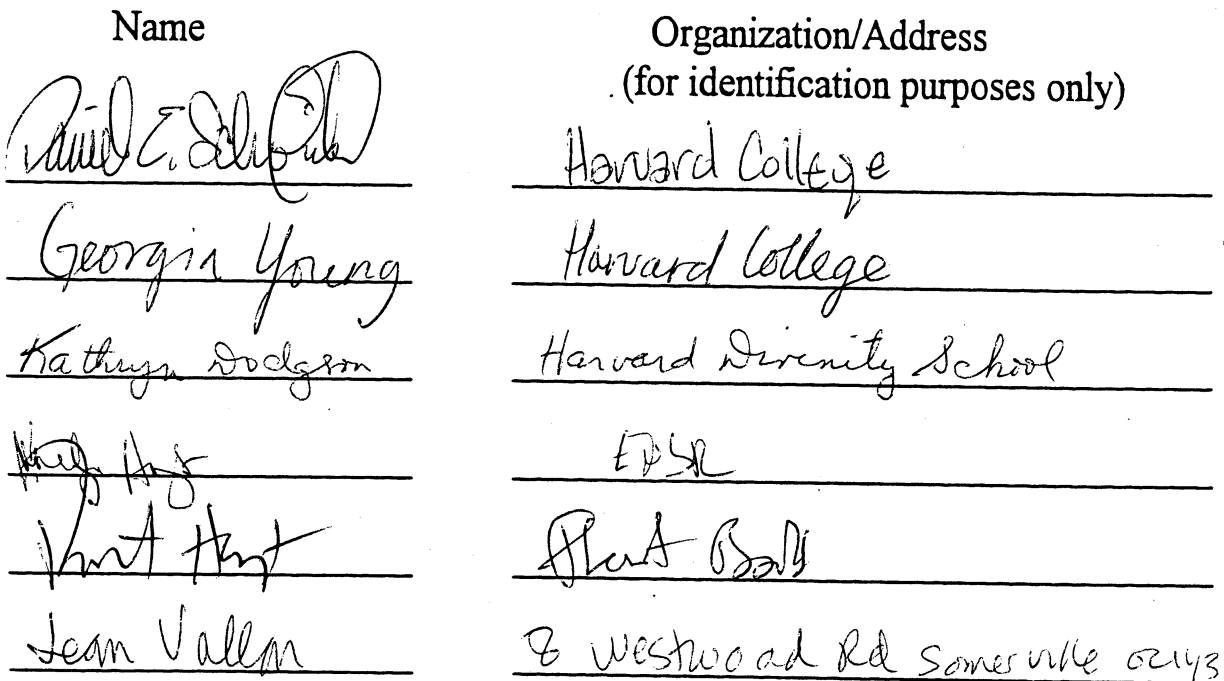 Name Organization/Address
(for identification purposes only)
Daniel E. Harvard College
Georgia Young Harvard College
Kathryn Dodgson Harvard Divinity School
Hoyt
Hoyt Plant
Jean Vallon 8 Westwood Rd Somerville 02143